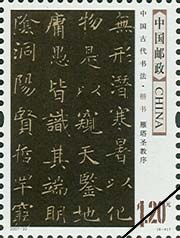 無形潛寒暑以化
物是以窺天鑒地
庸愚皆識其端明
陰洞陽賢哲罕窮
中国古代书法·楷书 雁塔圣教序
中国邮政
CHINA
1.20元
2007-30